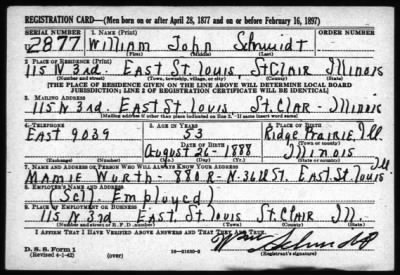 REGISTRATION CARD—(Men born on or after April 28, 1877 and on or before February 16, 1897)
SERIAL NUMBER 1. NAME (Print) ORDER NUMBER
2877 William John Schmidt
(First) (Middle) (Last)
2. PLACE OF RESIDENCE (Print)
115 N 3rd. East St. Louis, St Clair Illinois
(Number and street) (Town, township, village, or city) (County) (State)
[THE PLACE OF RESIDENCE GIVEN ON THE LINE ABOVE WILL DETERMINE LOCAL BOARD
JURISDICTION; LINE 2 OF REGISTRATION CERTIFICATE WILL BE IDENTICAL]
3. MAILING ADDRESS
115 N 3rd. East St. Louis St. Clair - Illinois
[Mailing address if other than place indicated on line 2. If same insert word same]
4. TELEPHONE 5. AGE IN YEARS 6. PLACE OF BIRTH
East 9039 53 Ridge Prairie, Ill.
DATE OF BIRTH (Town or county)
August 26 - 1888 Illinois
(Exchange) (Number) (Mo.) (Day) (Yr.) (State or country)
7. NAME AND ADDRESS OF PERSON WHO WILL ALWAYS KNOW YOUR ADDRESS
Mamie Wurth - 881 R - N. 36th St. East St. Louis Ill
8. EMPLOYER'S NAME AND ADDRESS
(Self Employed)
9. PLACE OF EMPLOYMENT OR BUSINESS
115 N 3rd East St. Louis St. Clair Ill.
(Number and street or R. F. D. number) (Town) (County) (State)
I AFFIRM THAT I HAVE VERIFIED ABOVE ANSWERS AND THAT THEY ARE TRUE.
D. S. S. Form 1 Wm Schmidt
(Revised 4-1-42) (over) 16—21630-2 (Registrant's signature)